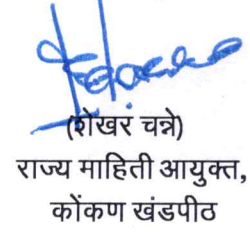 (शेखर चन्ने)
राज्य माहिती आयुक्त,
कोंकण खंडपीठ